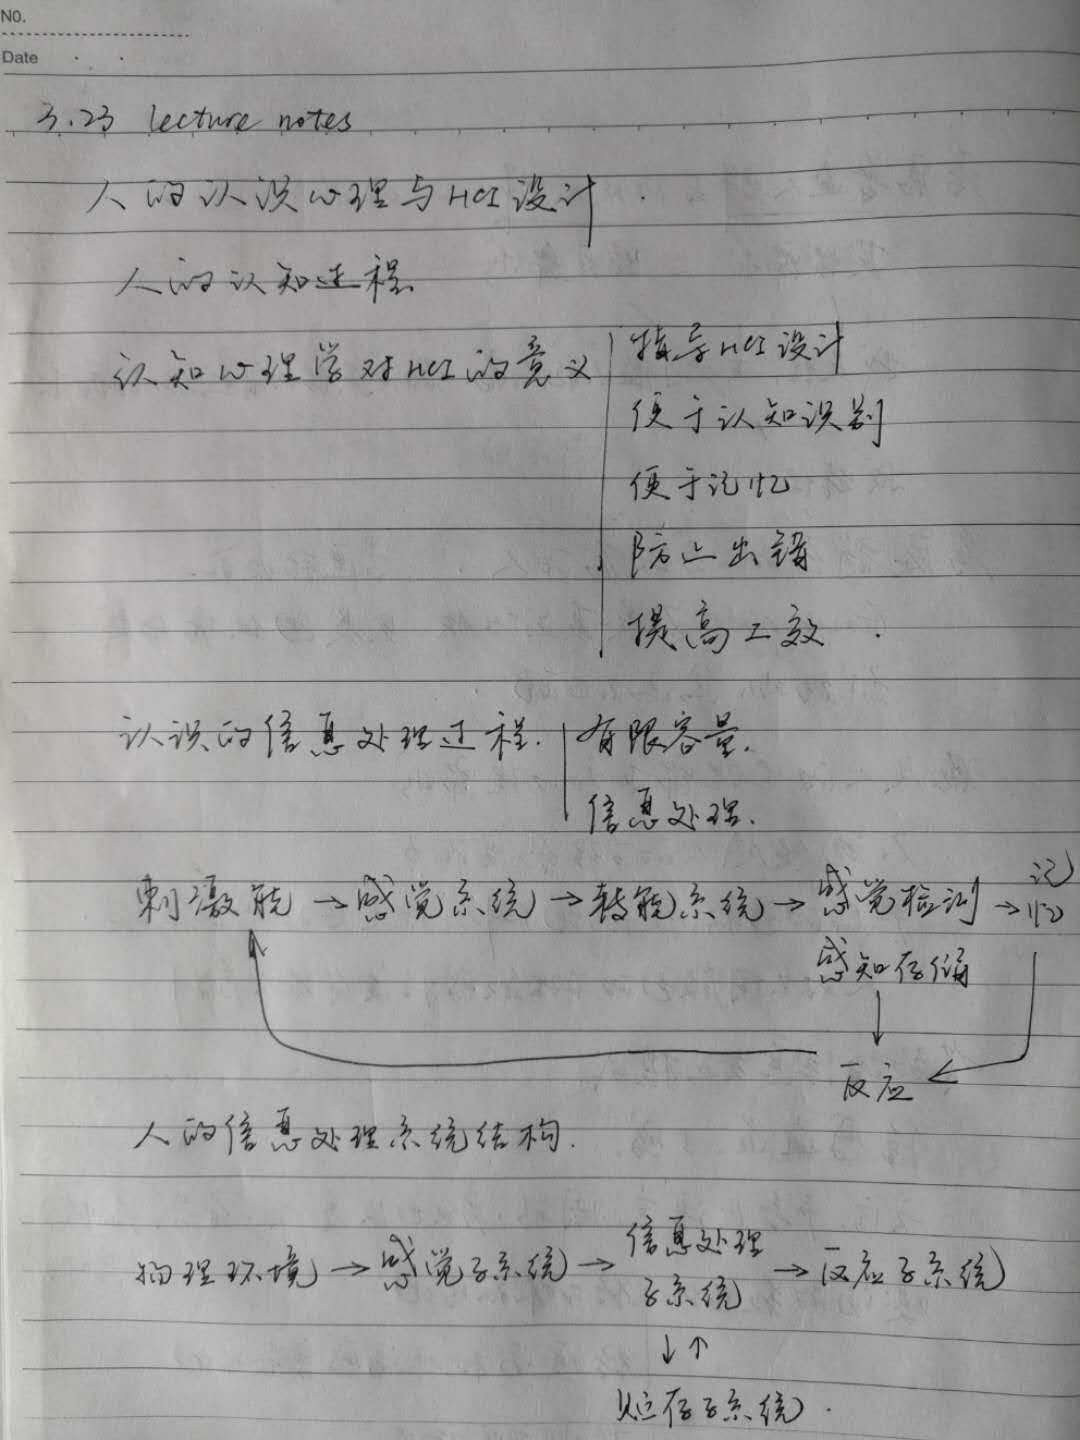 NO.
Date
3.23 lecture notes
人的认识心理与HCI设计.
人的认知过程.
认知心理学对HCI的意义
指导HCI设计
便于认知识别
便于记忆
防止出错
提高工效.
认识的信息处理过程.
有限容量.
信息处理.
刺激能→感觉系统→转能系统→感觉检测→记忆
感知存储
↓
反应 ←
人的信息处理系统结构.
物理环境→感觉子系统→信息处理子系统→反应子系统
↓↑
贮存子系统.